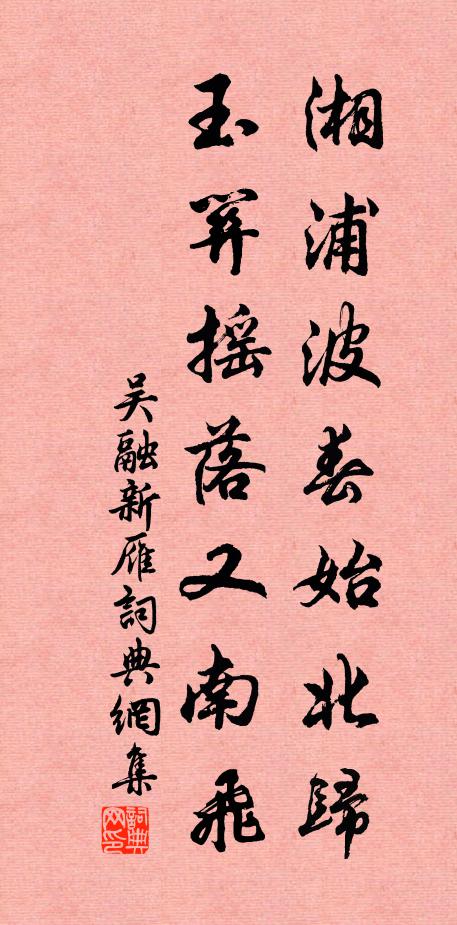 湘浦波春始北歸
玉關搖落又南飛
吴融新雁詞典網集
詞典网印